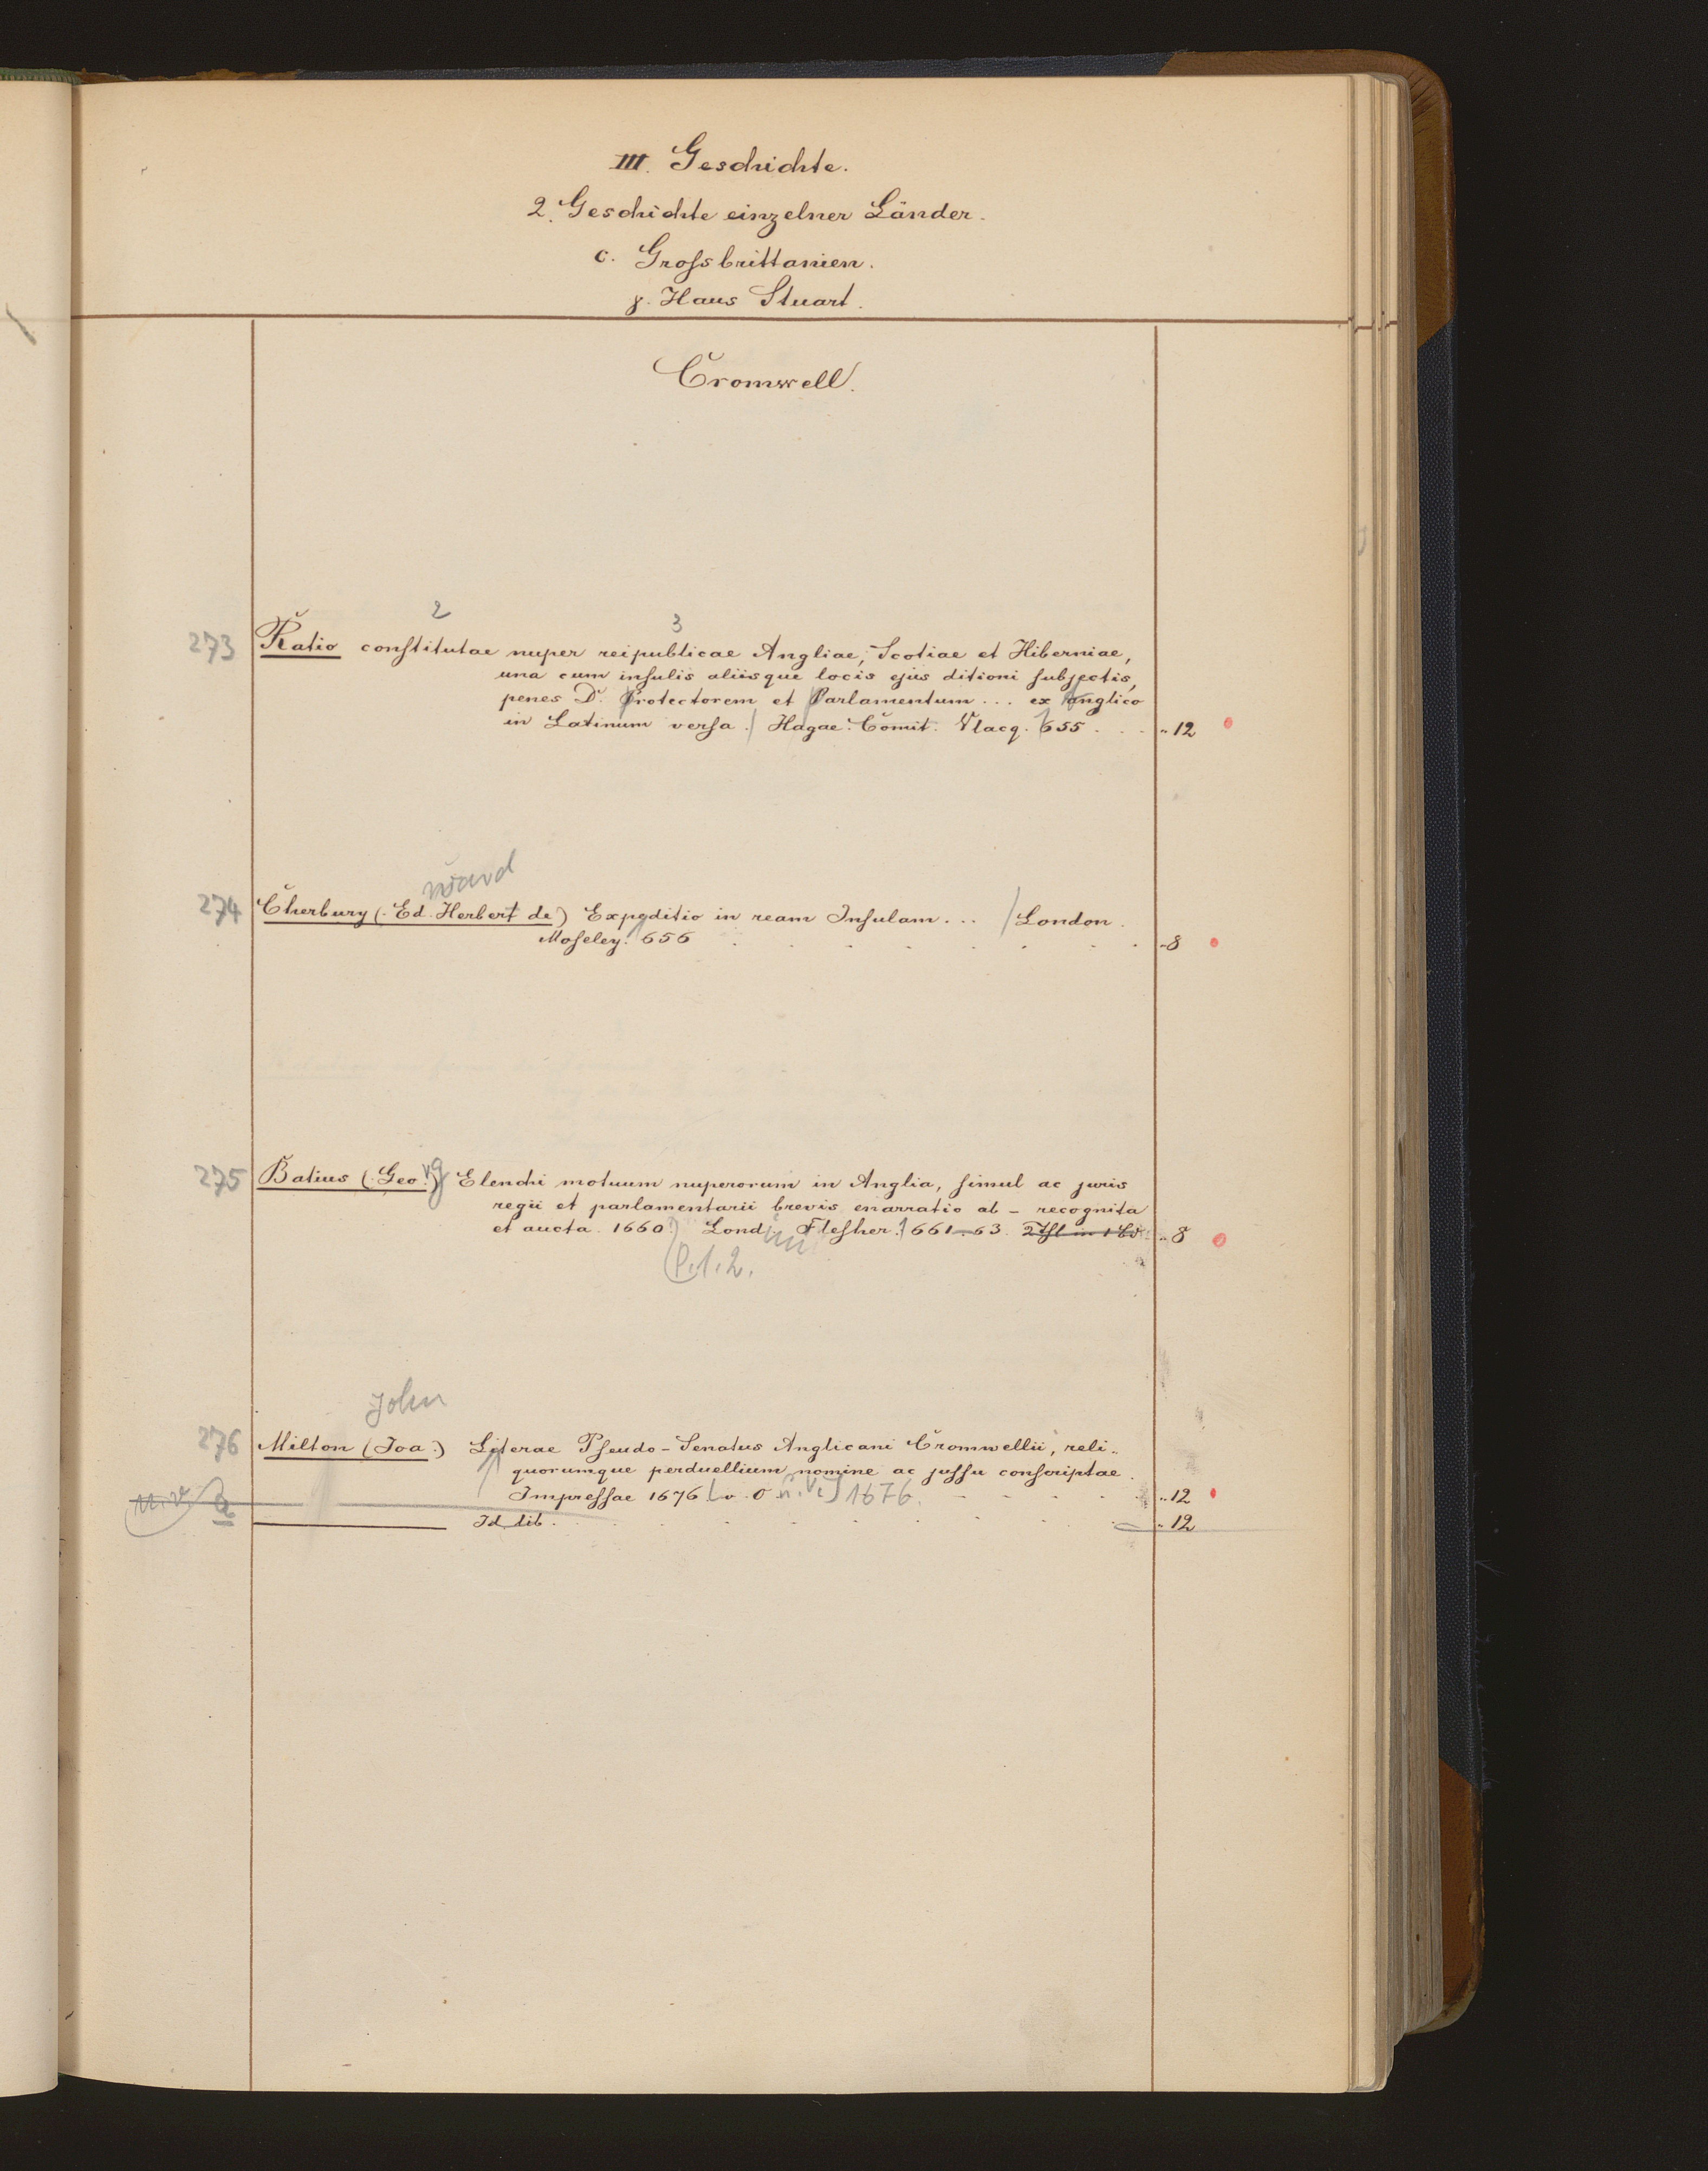 III. Geschichte.
2. Geschichte einzelner Länder.
c. Grossbrittanien.
γ. Haus Stuart.
Cromwell.
2 3
273 Ratio constitutae nuper reipublicae Angliae, Scotiae et Hiberniae,
una cum insulis aliisque locis ejus ditioni subjectis,
penes Dr. Protectorem et Parlamentum ... ex Anglico
in Latinum versa. / Hagae. Comit. Vlacq. 1655 . . . „ 12
ward
274 Cherbury (Ed. Herbert de) Expeditio in ream Insulam ... / London.
Moseley. 1656 . . . . . . . „ 8
275 Batius (Geo.rg) Elenchi motuum nuperorum in Anglia, simul ac juris
regii et parlamentarii brevis enarratio ab - recognita
et aucta. 1660.) Lond. Flesher. 1661-63. 2 Thl in 1 Bd. „ 8
(P. 1. 2.
John
276 Milton (Joa.) Literae Pseudo-Senatus Anglicani Cromwellii, reli-
quorumque perduellium nomine ac jussu conscriptae.
Impressae 1676 [o. O. u. V.] 1676. - - - - „ 12
Id. lib. . . . . . . . „ 12